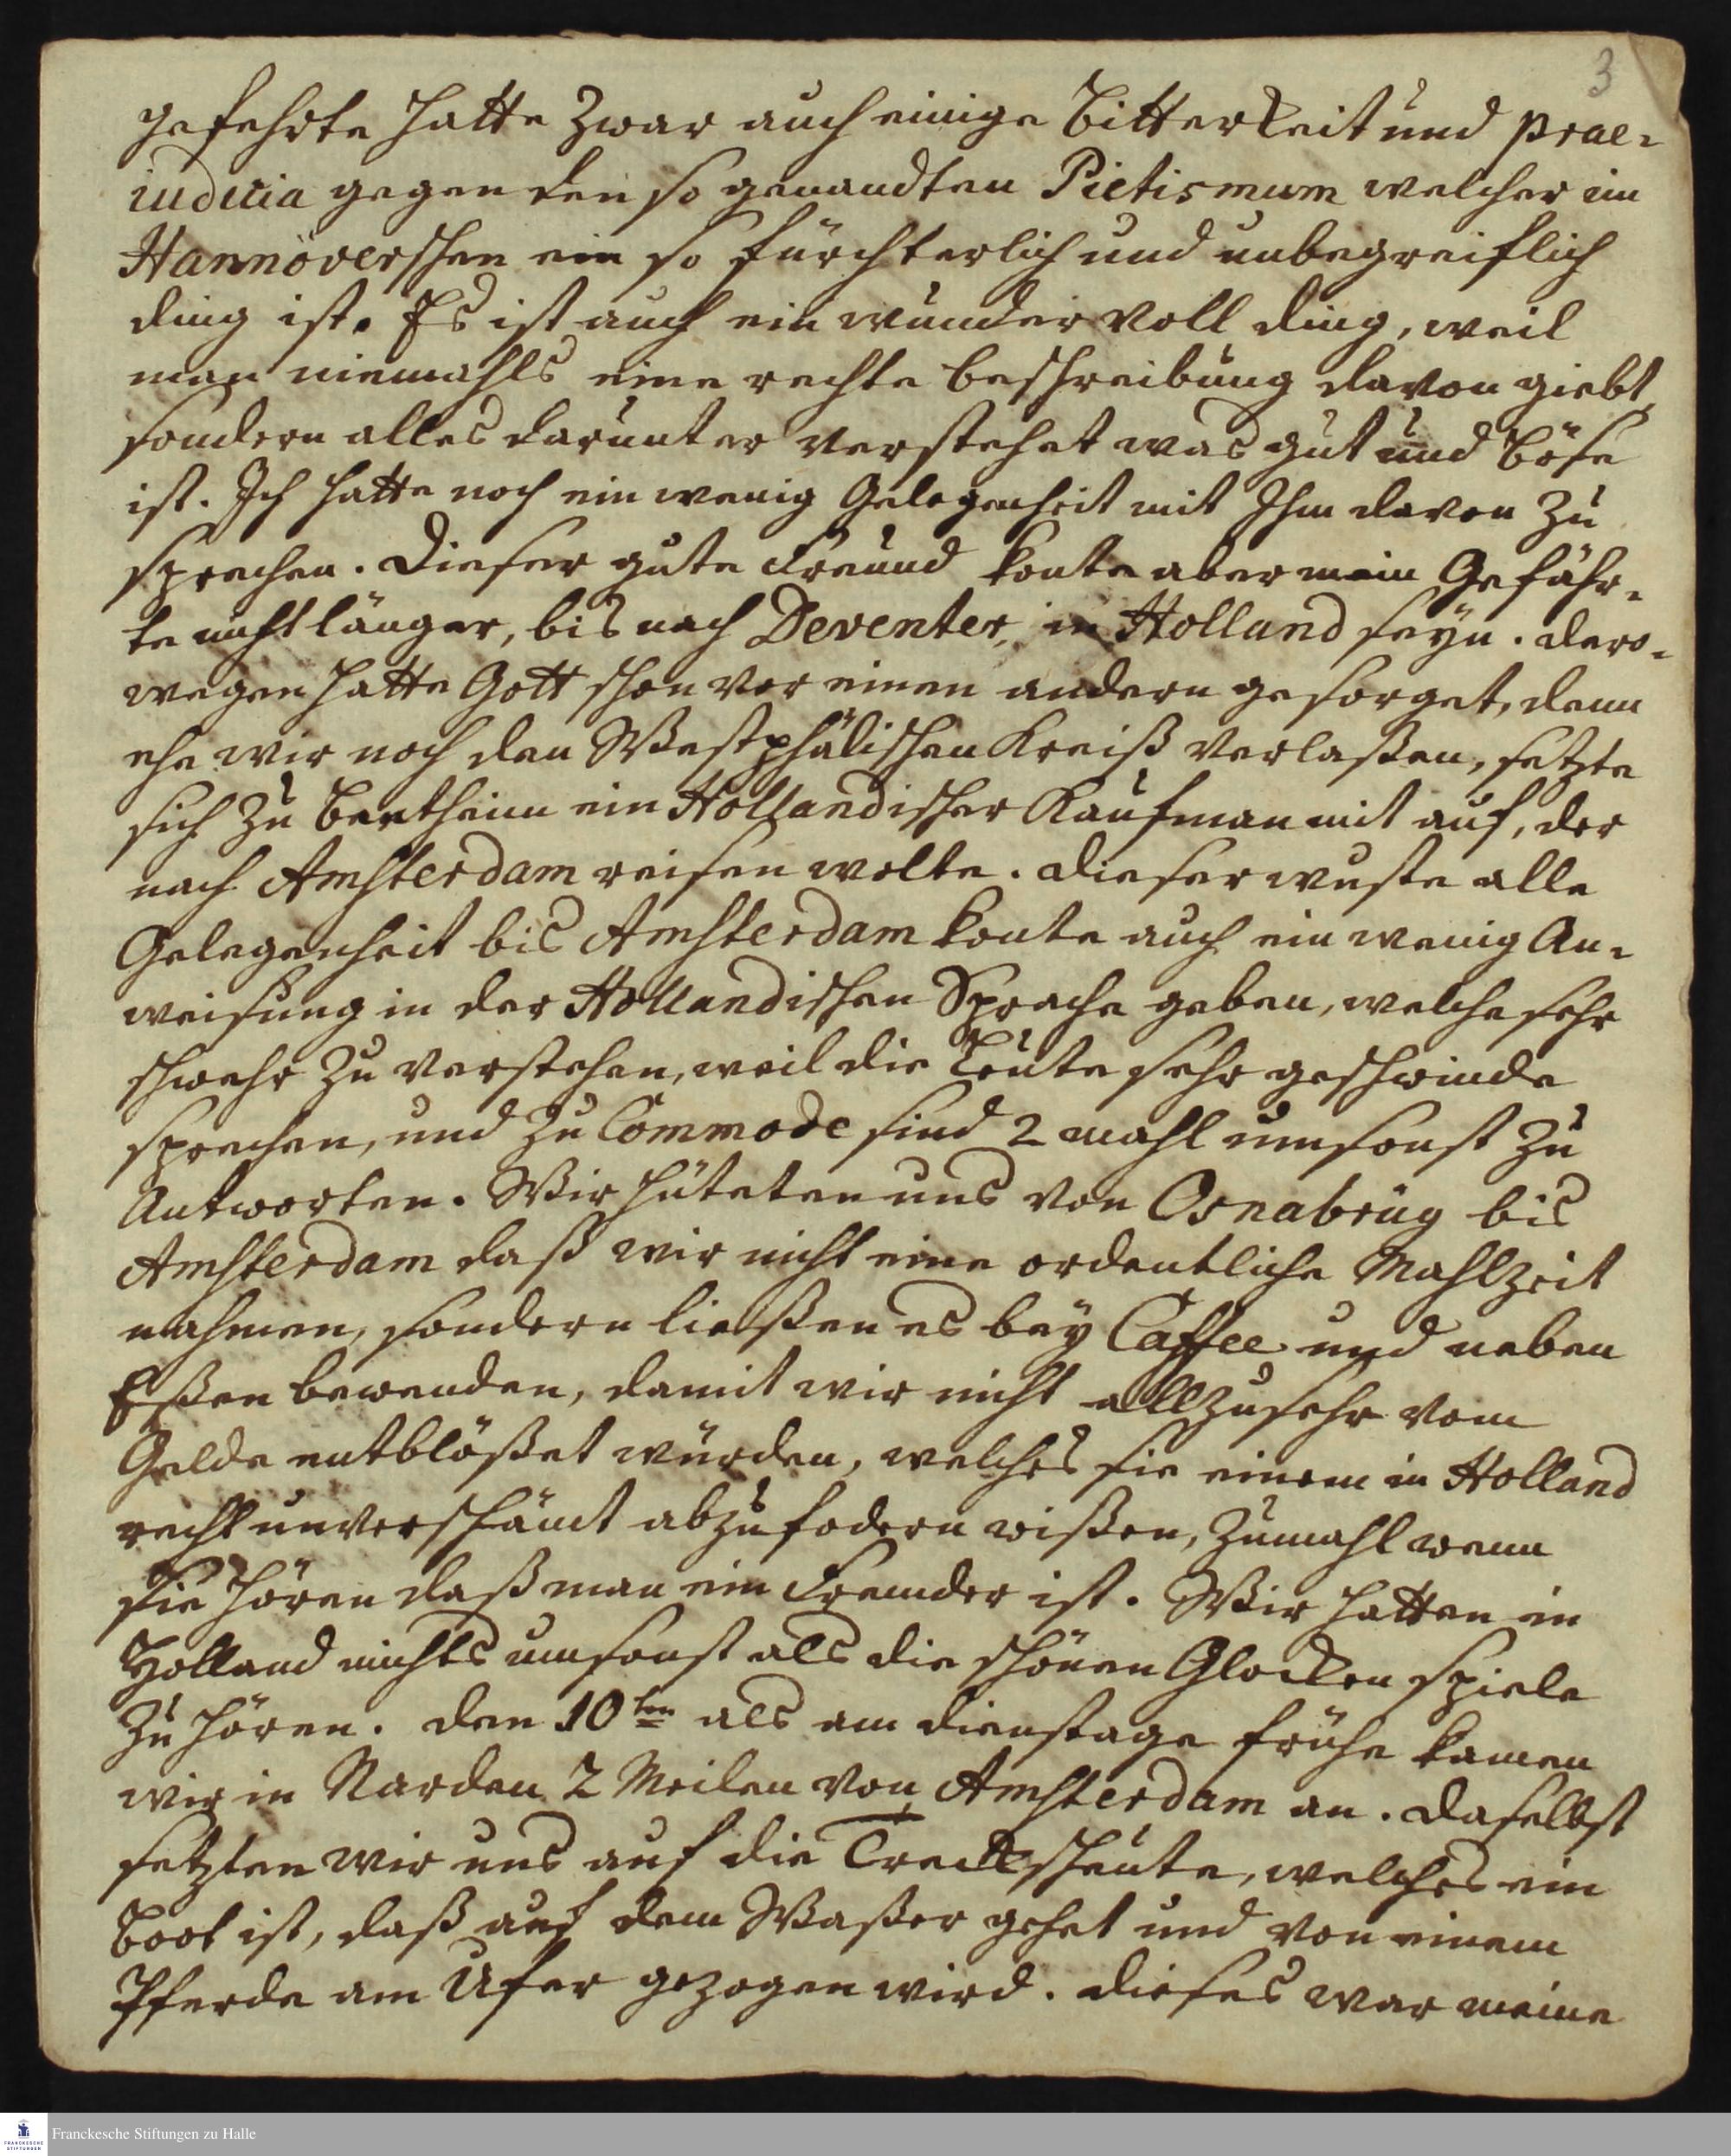 3
gefehrte hatte zwar auch einige Bitterkeit und prae-
iudicia gegen den so genandten Pietismum welcher im
Hannöverschen ein so fürchterlich und unbegreiflich
ding ist. Es ist auch ein wunder voll ding, weil
man niemahls eine rechte beschreibung davon giebt,
sondern alles darunter verstehet was gut und böse
ist. Ich hatte noch ein wenig Gelegenheit mit Ihm davon zu
sprechen. Dieser gute Freund konte aber mein Gefähr-
te nicht länger, bis nach Deventer, in Holland seyn. dero-
wegen hatte Gott schon vor einen andern gesorget, denn
ehe wir noch den Westphälischen Kreiß verlaßen, setzte
sich zu Bentheim ein Hollandischer Kaufman mit auf, der
nach Amsterdam reisen wolte. dieser wuste alle
Gelegenheit bis Amsterdam konte auch ein wenig An-
weisung in der Hollandischen Sprache geben, welche sehr
schwehr zu verstehen, weil die Leute sehr geschwinde
sprechen, und zu Commode sind 2 mahl umsonst zu
Antworten. Wir hüteten uns von Osnabrüg bis
Amsterdam daß wir nicht eine ordentliche Mahlzeit
nahmen, sondern ließen es bey Caffee und neben
Eßen bewenden, damit wir nicht allzusehr vom
Gelde entblößet würden, welches sie einem in Holland
recht unverschämt abzufodern wißen, zumahl wenn
sie hören daß man ein Fremder ist. Wir hatten in
Holland nichts umsonst als die schönen Glocken spiele
zu hören. den 10ten als am dienstage frühe kamen
wir in Narden 2 Meilen von Amsterdam an. daselbst
setzten wir uns auf die Treckscheute, welches ein
Boot ist, daß auf dem Waßer gehet und von einem
Pferde am Ufer gezogen wird. dieses war meine
Franckesche Stiftungen zu Halle